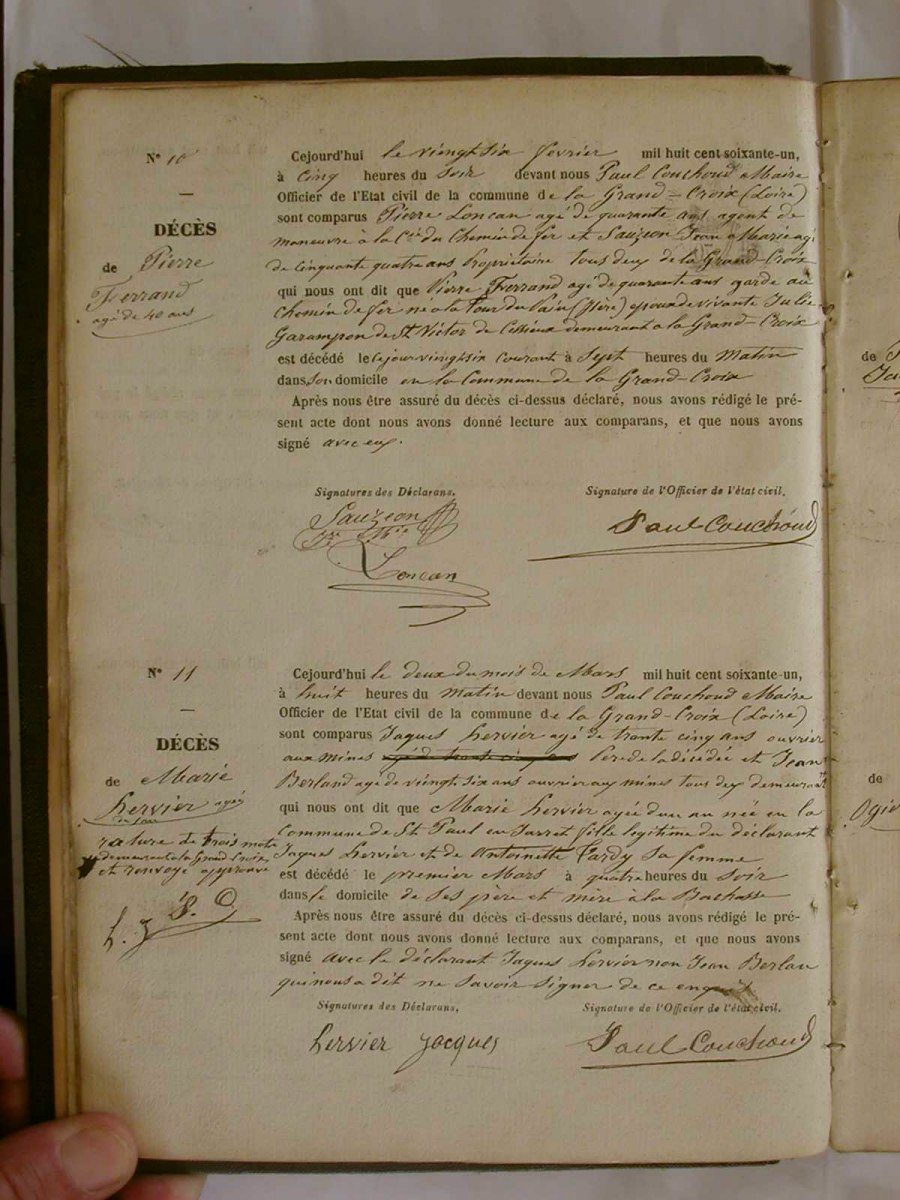 N° 10
DÉCÈS
de Pierre
Ferrand
agé de 40 ans
Cejourd'hui le vienghsix février mil huit cent soixante-un,
à Cinq heures du Soir devant nous Paul Couchoud Maire
Officier de l'Etat civil de la commune de la Grand-Croix (Loire)
sont comparus Pierre Loncan agé de quarante ans agent de
manœuvre à la Cie du Chemin de fer et Sauzeon Jean Marie agé
de Cinquante quatre ans Propriétaire tous deux de la Grand-Croix
qui nous ont dit que Pierre Ferrand agé de quarante ans garde au
chemin de fer né à la tour du Pain (Isère) époux de vivante Julie
Garampon de St Victor de demeurant a la Grand-Croix
est décédé le jour vienghsix Courant à Sept heures du Matin
dans son domicile en la Commune de la Grand-Croix
Après nous être assuré du décès ci-dessus déclaré, nous avons rédigé le pré-
sent acte dont nous avons donné lecture aux comparans, et que nous avons
signé avec eux.
Signatures des Déclarans.
Signature de l'Officier de l'état civil.
Sauzeon
Jn Mie
Loncan
Paul Couchoud
N° 11
DÉCÈS
de Marie
hervier agée
d'un an
rature de trois mots
demeurant a la Grand Croix
et renvoyé approuvé
P. C
h. J
Cejourd'hui le deux du mois de Mars mil huit cent soixante-un,
à huit heures du matin devant nous Paul Couchoud Maire
Officier de l'Etat civil de la commune de la Grand-Croix (Loire)
sont comparus Jaques hervier agé de trante cinq ans ouvrier
aux mines Père de la décédée et Jean
Berland agé de viengt six ans ouvrier aux mines tous deux demeurant
qui nous ont dit que Marie hervier agée d'un an née en la
Commune de St Paul en Jarret fille legitime du déclarant
Jaques hervier et de Antoinette Tardy sa femme
est décédé le premier Mars à quatre heures du Soir
dans le domicile de Ses père et mère à la Bachasse
Après nous être assuré du décès ci-dessus déclaré, nous avons rédigé le pré-
sent acte dont nous avons donné lecture aux comparans, et que nous avons
signé avec le déclarant Jaques hervier non Jean Berlan
qui nous a dit ne Savoir Signer de ce enquit
Signatures des Déclarans.
Signature de l'Officier de l'état civil.
hervier Jacques
Paul Couchoud
de
de
Ogier